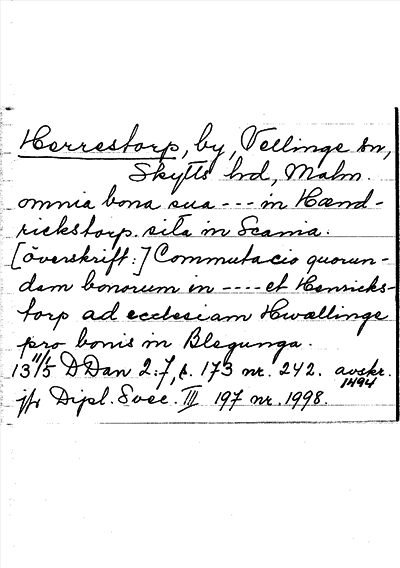 Herrestorp, by, Vellinge sn,
Skytts hd, Malm.
omnia bona sua --- in Hænd-
rickstorp. sita in Scania.
[överskrift:] Commutacio quorun-
dam bonorum in ---- et Henricks-
torp ad ecclesiam Hwællinge
pro bonis in Blegunga.
13 11/5 DDan 2:7, s. 173 nr. 242. avskr.
1494
jfr Dipl. Svec. III 197 nr. 1998.